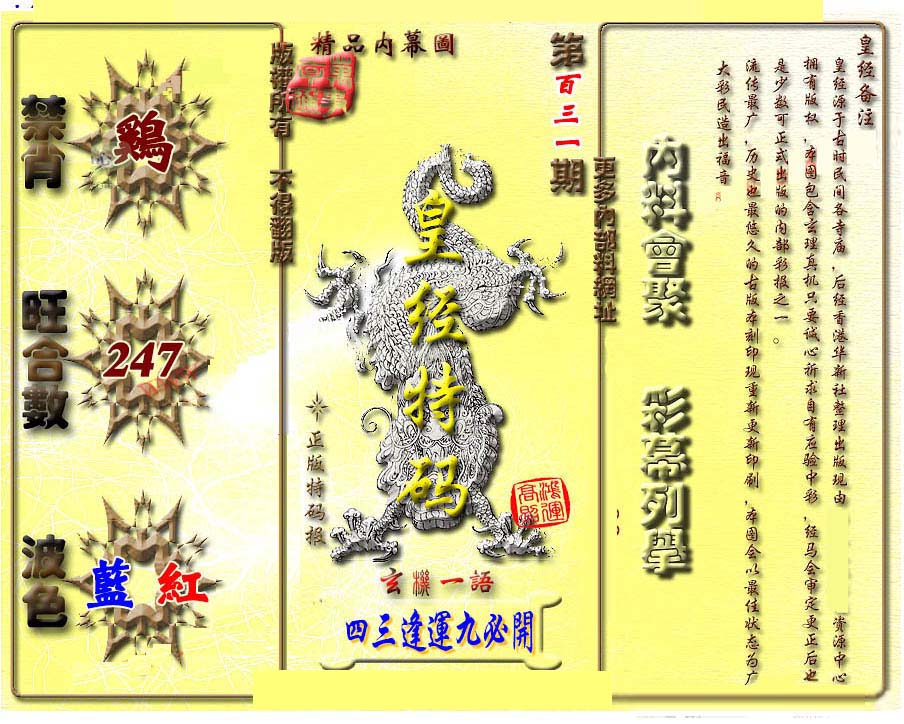 精品内幕圖
第百三一期
版權所有 不得翻版
更多內部料網址
禁肖
鷄
旺合數
247
波色
藍 紅
皇经特码
正版特码报
鴻運
高照
玄機一語
四三逢運九必開
内料會聚
彩幕列擧
皇经备注
皇经源于古时民间各寺庙，后经香港华新社整理出版现由 资源中心
拥有版权，本图包含玄理真机只要诚心祈求自有应验中彩，经马会审定更正后也
是少数可正式出版的内部彩报之一。
流传最广，历史也最悠久的古版本刻印现重新更新印刷，本图会以最佳状态为广
大彩民造出福音